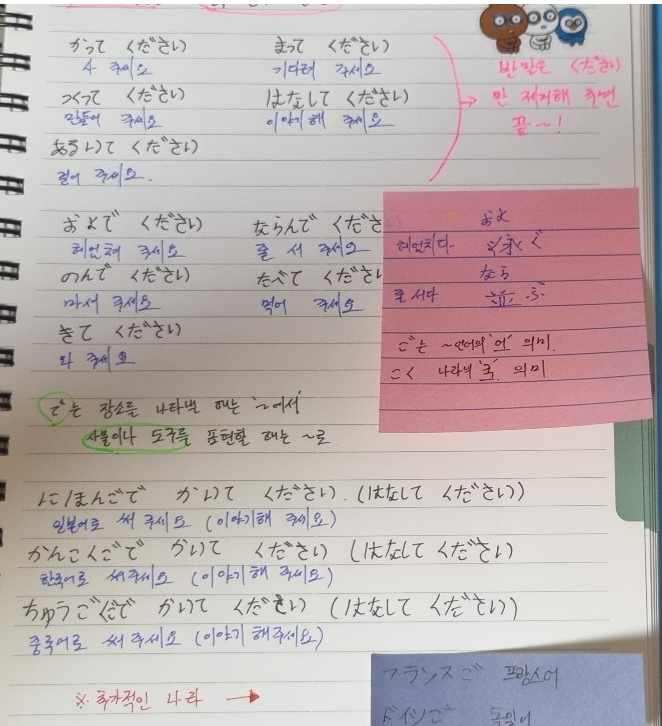 かって ください まって ください
사 주세요 기다려 주세요
つくって ください はなして ください
만들어 주세요 이야기해 주세요
あるいて ください
걸어 주세요.
반말은 ください
만 제거해 주면
끝~!
およで ください ならんで くださ
헤엄쳐 주세요 줄 서 주세요
のんで ください たべて くださ
마셔 주세요 먹어 주세요
きて ください
와 주세요
およ
헤엄치다 泳ぐ
なら
줄서다 並ぶ
ご는 ~언어의 '어' 의미.
こく 나라의 '국' 의미
で는 장소를 나타낼 때는 '~에서'
사물이나 도구를 표현할 때는 ~로
にほんごで かいて ください. (はなして ください)
일본어로 써 주세요 (이야기해 주세요)
かんこくごで かいて ください (はなして ください)
한국어로 써주세요 (이야기해 주세요)
ちゅうごくごで かいて ください (はなして ください)
중국어로 써 주세요 (이야기 해주세요)
※ 추가적인 나라 →
フランスご 프랑스어
ドイツご 독일어